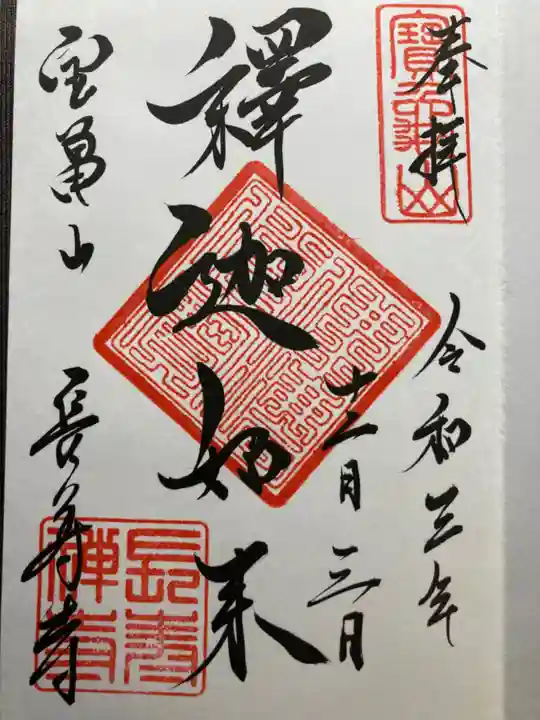 奉拝
寶亀山
令和三年
十二月三日
釋迦如来
宝亀山
長寿寺
長壽禅寺